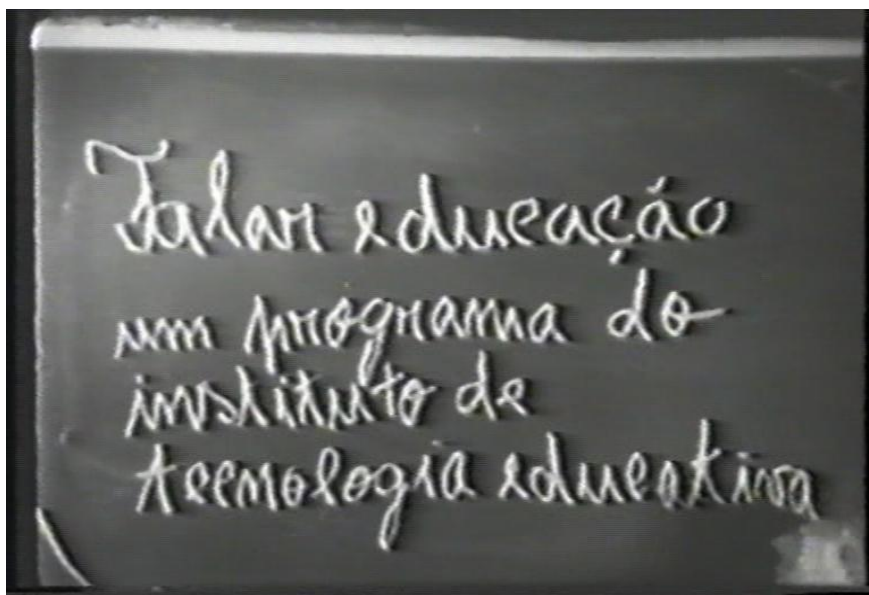 Falar educação
um programa do
instituto de
tecnologia educativa